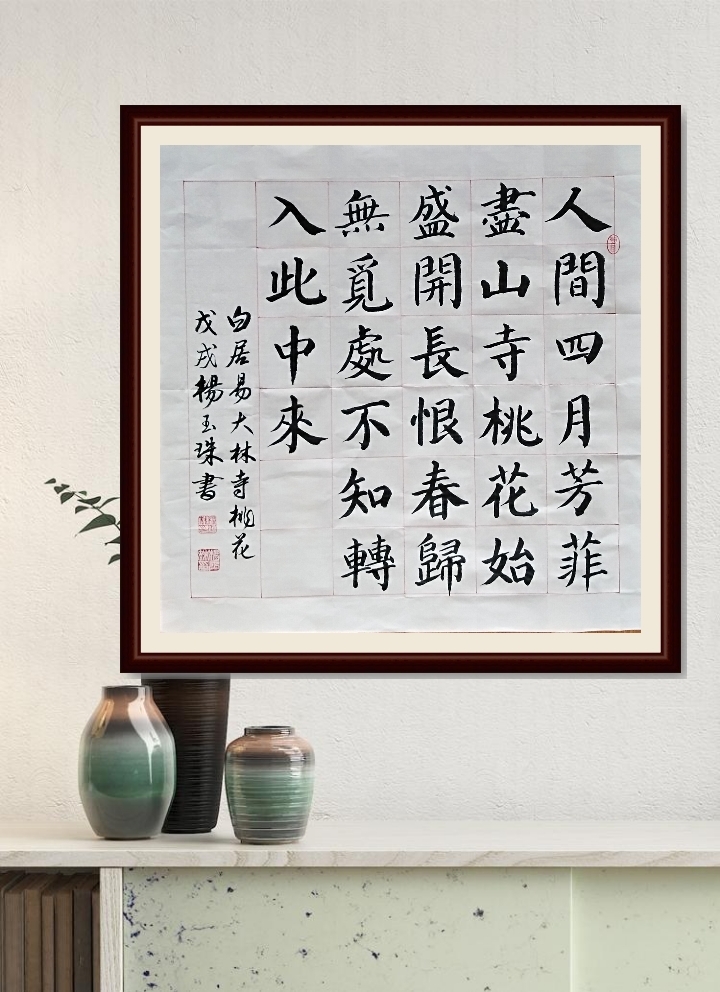 人間四月芳菲
盡山寺桃花始
盛開長恨春歸
無覓處不知轉
入此中來
白居易大林寺桃花
戊戌楊玉珠書